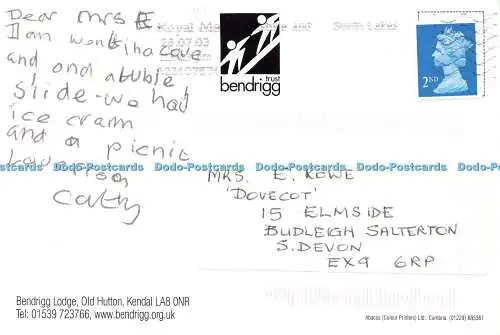 Dear Mrs E
I am wont in a cave
and ond a bubbel
slide we had
ice cram
and a picnic
Love from
Cathy
Royal Mail
South Lakes
28.07.03
trust
bendrigg
2ND
Dodo-Postcards Dodo-Postcards Dodo-Postcards Dodo-Postcards Dodo-Postcards
MRS. E. ROWE
'DOVECOT'
15 ELMSIDE
BUDLEIGH SALTERTON
S. DEVON
EX9 6RP
Bendrigg Lodge, Old Hutton, Kendal LA8 0NR
Tel: 01539 723766, www.bendrigg.org.uk
Abacus (Colour Printers) Ltd., Cumbria (01229) 885361